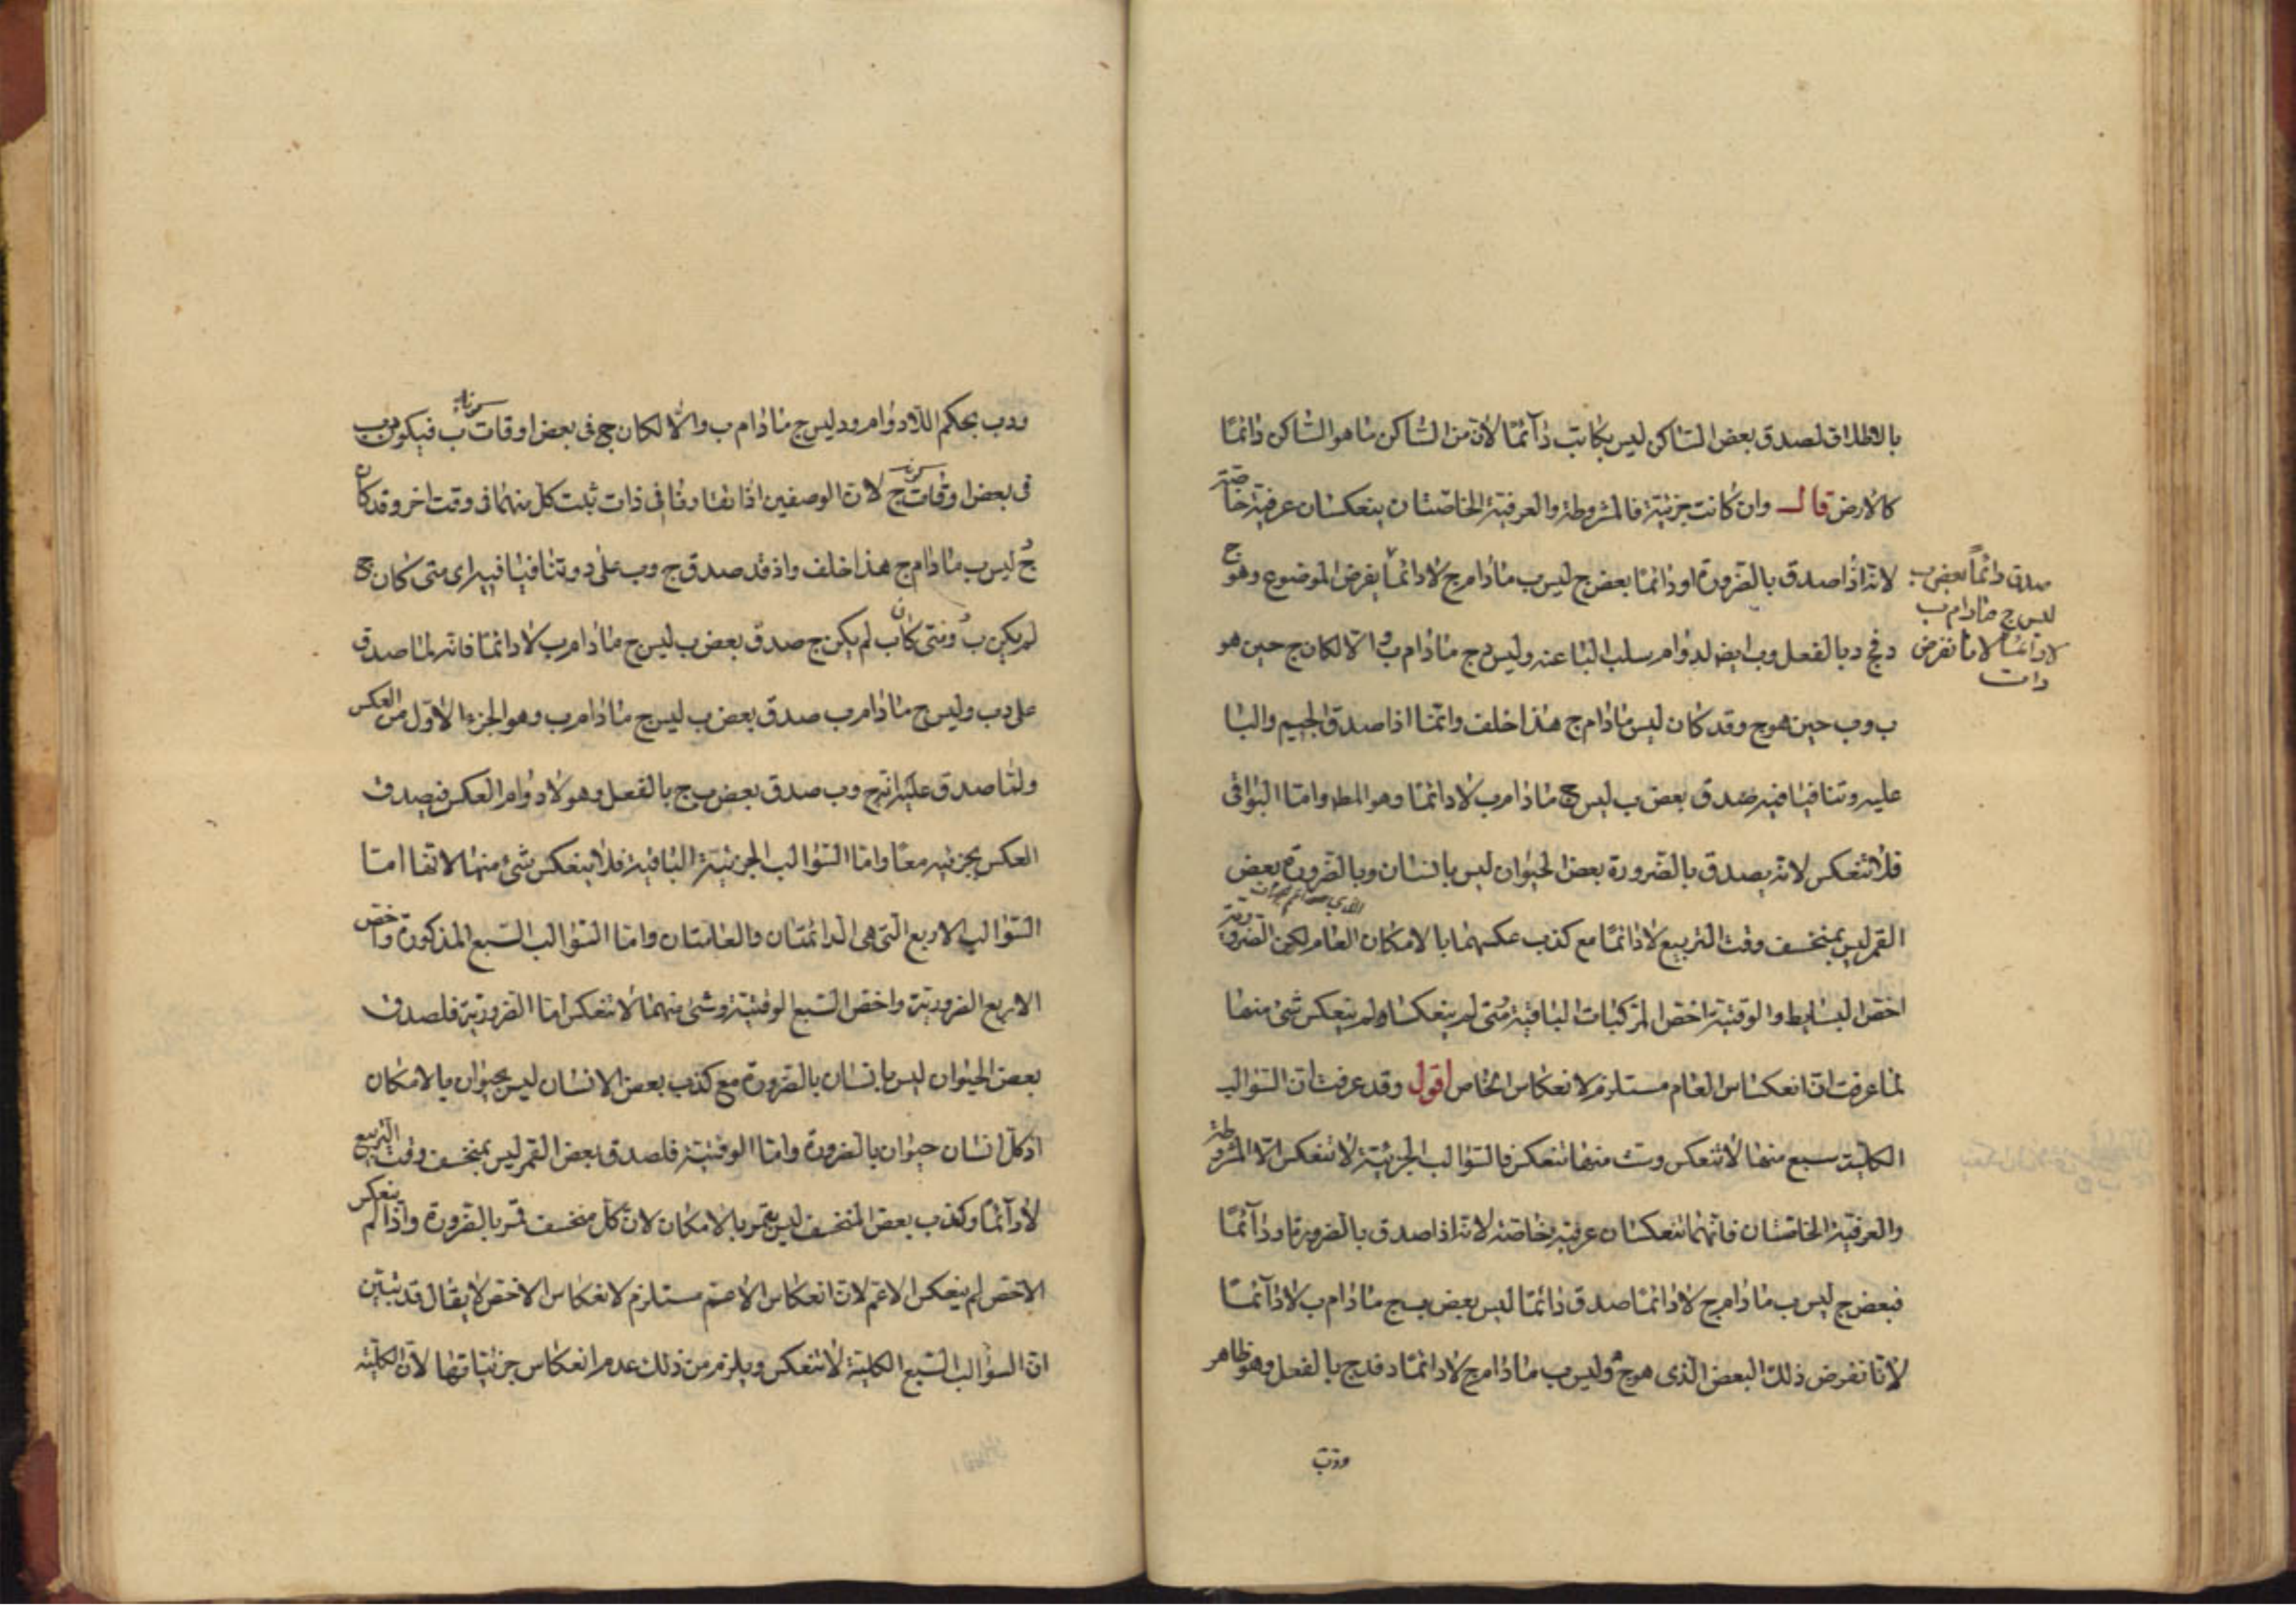 بالاطلاق لصدق بعض الساكن ليس بكاتب دآئمًا لان من الساكن ما هو الساكن دائمًا
كالارض قال وان كانت جزئية فالمشروطة والعرفية الخاصتان ينعكسان عرفية خاصّة
لانه اذا صدق بالضرورة او دائمًا بعض ج ليس ب ما دام ج لا دائمًا يفرض الموضوع وهو ج
صدق دائمًا بعض ب
ليس ج ما دام ب
لا دائمًا لانا نفرض
ذات
د فج د بالفعل وب ايضا لدوام سلب البا عنه وليس د ج ما دام ب والّا لكان ج حين هو
ب وب حين هو ج وقد كان ليس ما دام ج هذا خلف وانما اذا صدق الجيم والبا
عليه وتنافيا فيه صدق بعض ب ليس ج ما دام ب لا دائمًا وهو المط واما البواقى
فلا تنعكس لانه يصدق بالضرورة بعض الحيوان ليس بانسان وبالضرورة بعض
القمر ليس بمنخسف وقت التربيع لا دائمًا مع كذب عكسهما بالامكان العام لكن الضرورية
اخص البسايط والوقتية اخص المركبات الباقية ومتى لم ينعكسا لم ينعكس شئ منها
لما عرفت ان انعكاس العام مستلزم لانعكاس الخاص اقول وقد عرفت ان السوالب
الكلية سبع منها لا تنعكس وست منها تنعكس فالسوالب الجزئية لا تنعكس الّا المشروطة
والعرفية الخاصتان فانهما تنعكسان عرفية خاصة لانه اذا صدق بالضرورة او دآئمًا
فبعض ج ليس ب ما دام ج لا دائمًا صدق دائمًا ليس بعض ب ج ما دام ب لا دآئمًا
لانا نفرض ذلك البعض الذى هو ج وليس ب ما دام ج لا دائمًا د فد ج بالفعل وهو ظاهر
ودب
ودب بحكم اللادوام ود ليس ج ما دام ب والّا لكان ج فى بعض اوقات كونه ب فيكون ب
فى بعض اوقات كونه ج لان الوصفين اذا تقارنا فى ذات ثبت كل منهما فى وقت اخر وقد كان
ج ليس ب ما دام ج هذا خلف واذ قد صدق ج وب على د وتنافيا فيه اى متى كان ج
لم يكن ب ومتى كان ب لم يكن ج صدق بعض ب ليس ج ما دام ب لا دائمًا فانه لما صدق
على د ب وليس ج ما دام ب صدق بعض ب ليس ج ما دام ب وهو الجزء الاول من العكس
ولما صدق عليه انه ج وب صدق بعض ب ج بالفعل وهو لا دوام العكس فيصدق
العكس بجزئيه معًا واما السوالب الجزئية الباقية فلا ينعكس شئ منها لانها اما
السوالب الاربع التى هى الدائمتان والعامتان واما السوالب السبع المذكورة واخص
الاربع الضرورية واخص السبع الوقتية وشئ منهما لا تنعكس اما الضرورية فلصدق
بعض الحيوان ليس بانسان بالضرورة مع كذب بعض الانسان ليس بحيوان بالامكان
اذ كل انسان حيوان بالضرورة واما الوقتية فلصدق بعض القمر ليس بمنخسف وقت التربيع
لا دآئمًا وكذب بعض المنخسف ليس بقمر بالامكان لان كل منخسف قمر بالضرورة واذا لم ينعكس
الاخص لم ينعكس الاعم لان انعكاس الاعم مستلزم لانعكاس الاخص لا يقال قد تبين
ان السوالب السبع الكلية لا تنعكس ويلزم من ذلك عدم انعكاس جزئياتها لان الكلية